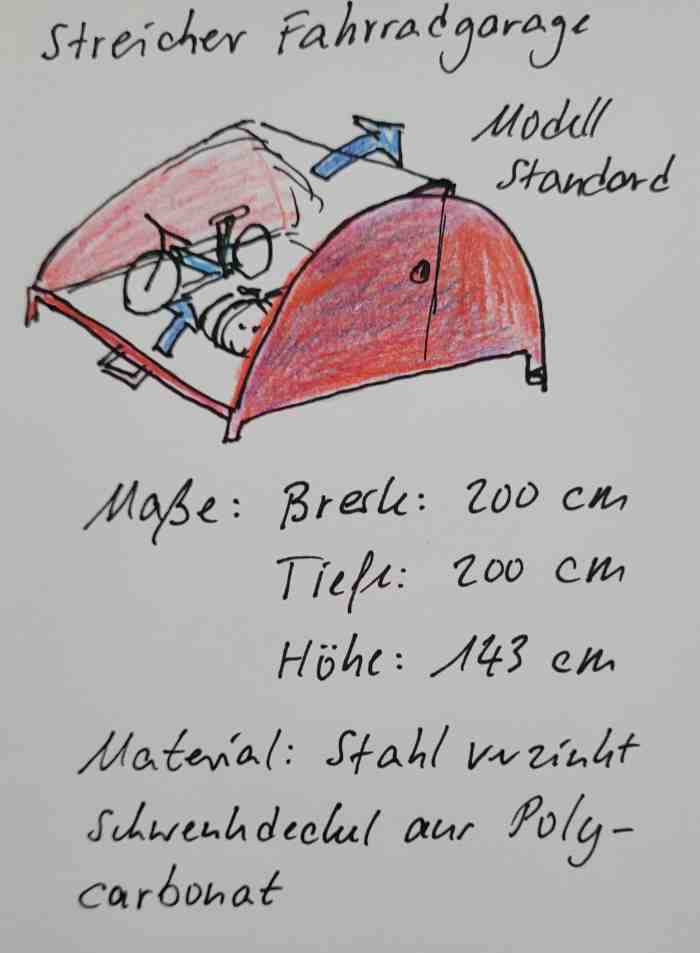 Streicher Fahrradgarage
Modell
Standard
Maße: Breite: 200 cm
Tiefe: 200 cm
Höhe: 143 cm
Material: Stahl verzinkt
Schwenkdeckel aus Poly-
carbonat